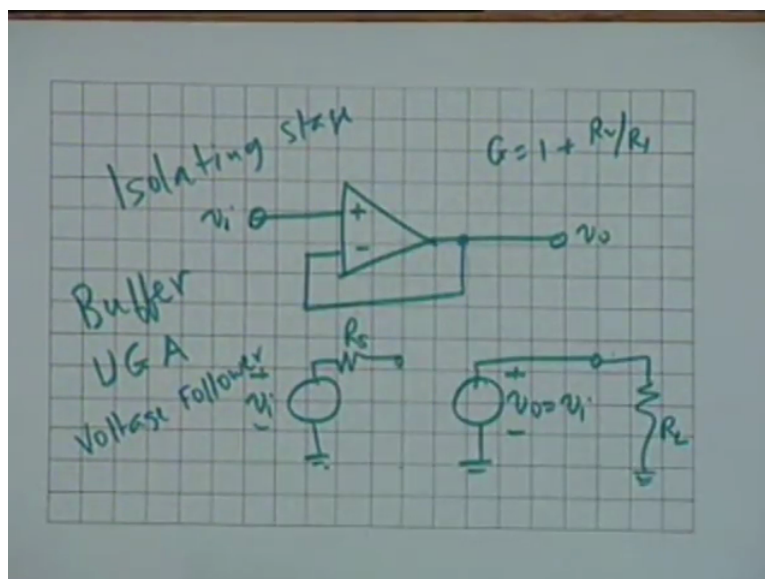 Isolating stage
G = 1 + R2/R1
vi
+
-
vo
Buffer
UGA
Voltage Follower
+
vi
-
Rs
+
vo = vi
-
RL